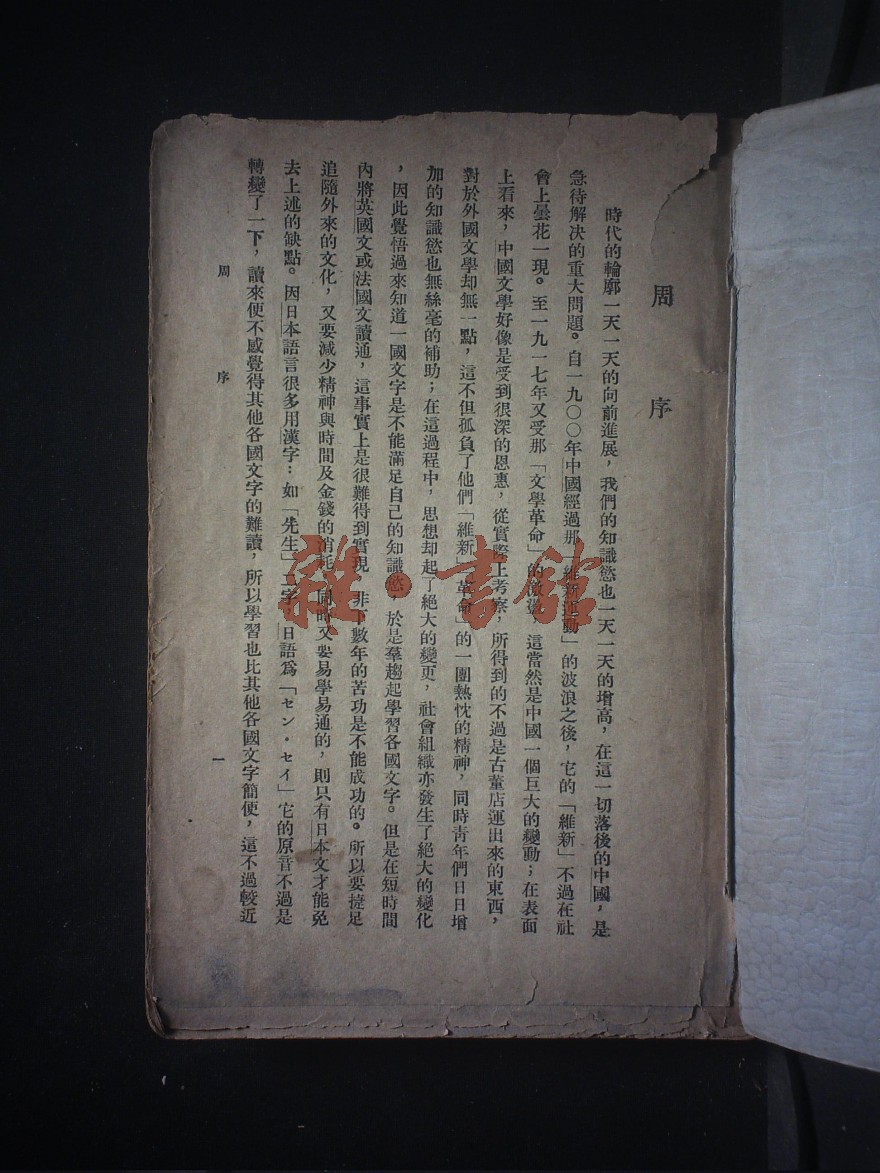 周序
時代的輪廓一天一天的向前進展，我們的知識慾也一天一天的增高，在這一切落後的中國，是
急待解决的重大問題。自一九〇〇年中國經過那「維新運動」的波浪之後，它的「維新」不過在社
會上曇花一現。至一九一七年又受那「文學革命」的激盪，這當然是中國一個巨大的變動；在表面
上看來，中國文學好像是受到很深的恩惠，從實際上考察，所得到的不過是古董店運出來的東西，
對於外國文學却無一點，這不但孤負了他們「維新」「革命」的一團熱忱的精神，同時青年們日日增
加的知識慾也無絲毫的補助；在這過程中，思想却起了絕大的變更，社會組織亦發生了絕大的變化
，因此覺悟過來知道一國文字是不能滿足自己的知識慾，於是羣趨起學習各國文字。但是在短時間
內將英國文或法國文讀通，這事實上是很難得到實現，非下數年的苦功是不能成功的。所以要捷足
追隨外來的文化，又要減少精神與時間及金錢的消耗，同時又要易學易通的，則只有日本文才能免
去上述的缺點。因日本語言很多用漢字：如「先生」二字，日語爲「セン・セイ」它的原音不過是
轉變了一下，讀來便不感覺得其他各國文字的難讀，所以學習也比其他各國文字簡便，這不過較近
周序 一
雜·書館